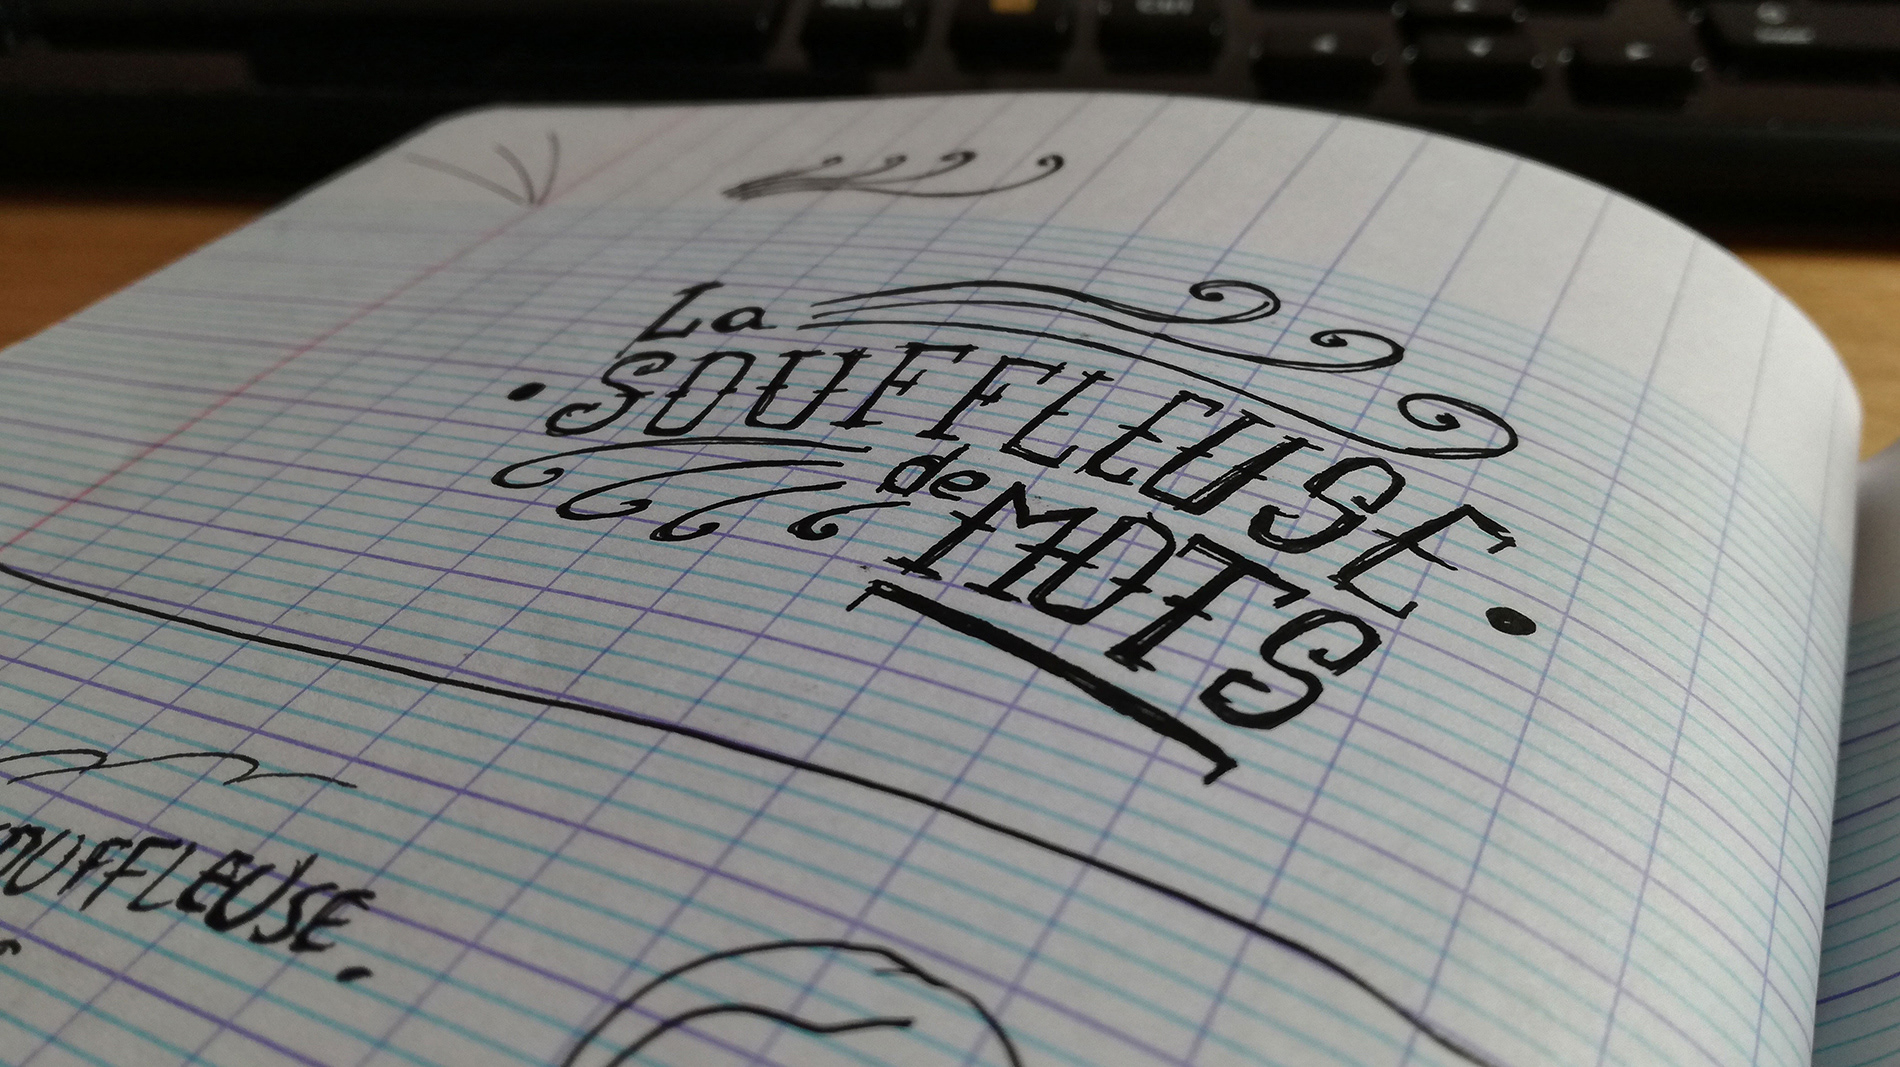 La
SOUFFLEUSE
de
MOTS
OUFFLEUSE